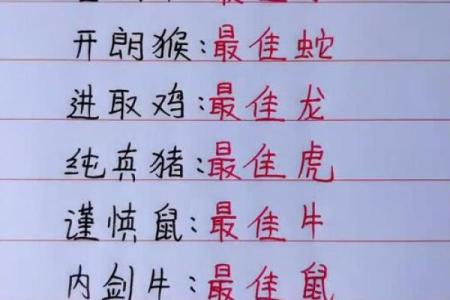 开朗猴:最佳蛇
进取鸡:最佳龙
纯真猪:最佳虎
谨慎鼠:最佳牛
内剑牛:最佳鼠